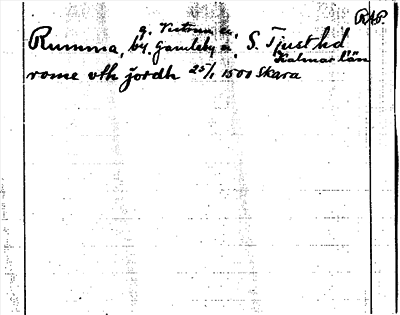 RAP.
g. Västrum sn,
Rumma, by, Gamleby sn, S. Tjust hd
Kalmar län
rome vth jordh 25/1 1500 Skara